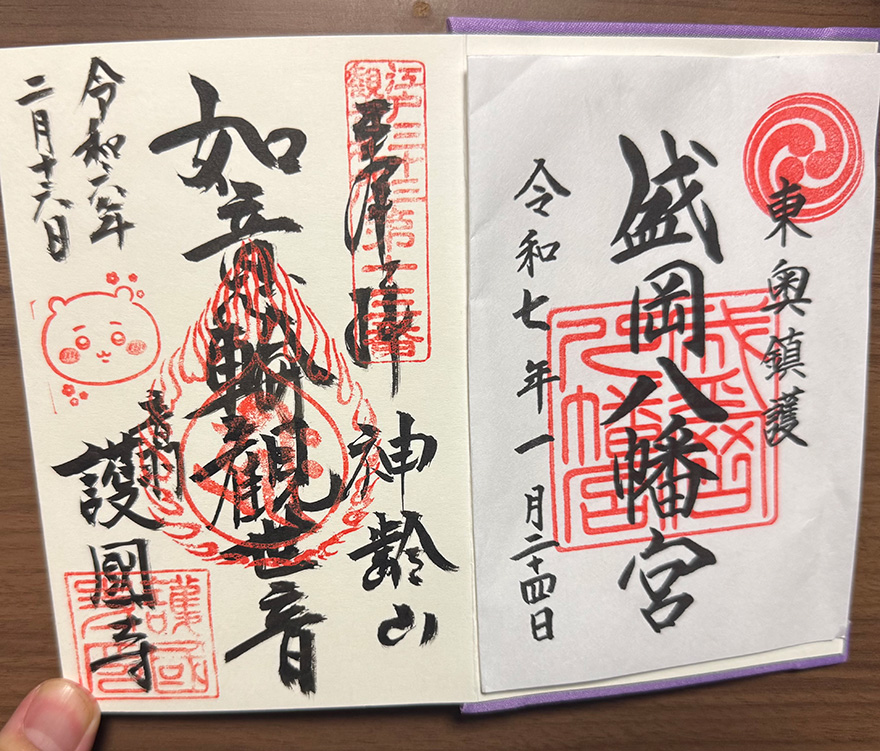 東奥鎮護
盛岡八幡宮
盛岡
八幡宮
令和七年一月二十四日
江戸三十三
第十三番
神齢山
如意輪観世音
音羽
護國寺
令和六年
二月十六日